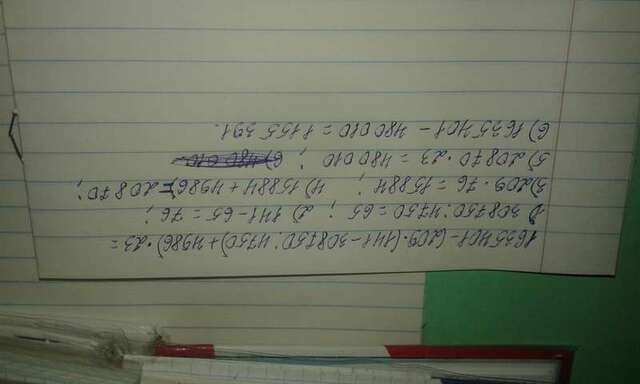 1635401-(209·(141-308750:4750)+4986)·23=
1) 308750:4750=65 ; 2) 141-65=76;
3) 209·76=15884 ; 4) 15884+4986=20870;
5) 20870·23=480010 ; 6) 480 010
6) 1635401-480010=1155391.